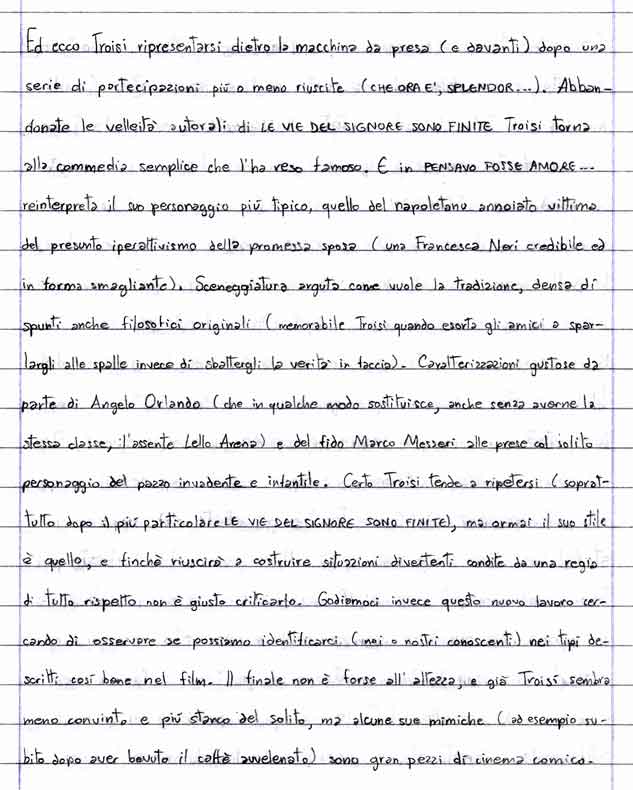 Ed ecco Troisi ripresentarsi dietro la macchina da presa (e davanti) dopo una
serie di partecipazioni più o meno riuscite (CHE ORA E', SPLENDOR...). Abban-
donate le velleità autorali di LE VIE DEL SIGNORE SONO FINITE Troisi torna
alla commedia semplice che l'ha reso famoso. E in PENSAVO FOSSE AMORE...
reinterpreta il suo personaggio più tipico, quello del napoletano annoiato vittima
del presunto iperattivismo della promessa sposa (una Francesca Neri credibile ed
in forma smagliante). Sceneggiatura arguta come vuole la tradizione, densa di
spunti anche filosofici originali (memorabile Troisi quando esorta gli amici a spar-
largli alle spalle invece di sbattergli la verità in faccia). Caratterizzazioni gustose da
parte di Angelo Orlando (che in qualche modo sostituisce, anche senza averne la
stessa classe, l'assente Lello Arena) e del fido Marco Messeri alle prese col solito
personaggio del pazzo invadente e infantile. Certo Troisi tende a ripetersi (soprat-
tutto dopo il più particolare LE VIE DEL SIGNORE SONO FINITE), ma ormai il suo stile
è quello, e finchè riuscirà a costruire situazioni divertenti condite da una regia
di tutto rispetto non è giusto criticarlo. Godiamoci invece questo nuovo lavoro cer-
cando di osservare se possiamo identificarci (noi o nostri conoscenti) nei tipi de-
scritti così bene nel film. Il finale non è forse all'altezza, e già Troisi sembra
meno convinto e più stanco del solito, ma alcune sue mimiche (ad esempio su-
bito dopo aver bevuto il caffè avvelenato) sono gran pezzi di cinema comico.